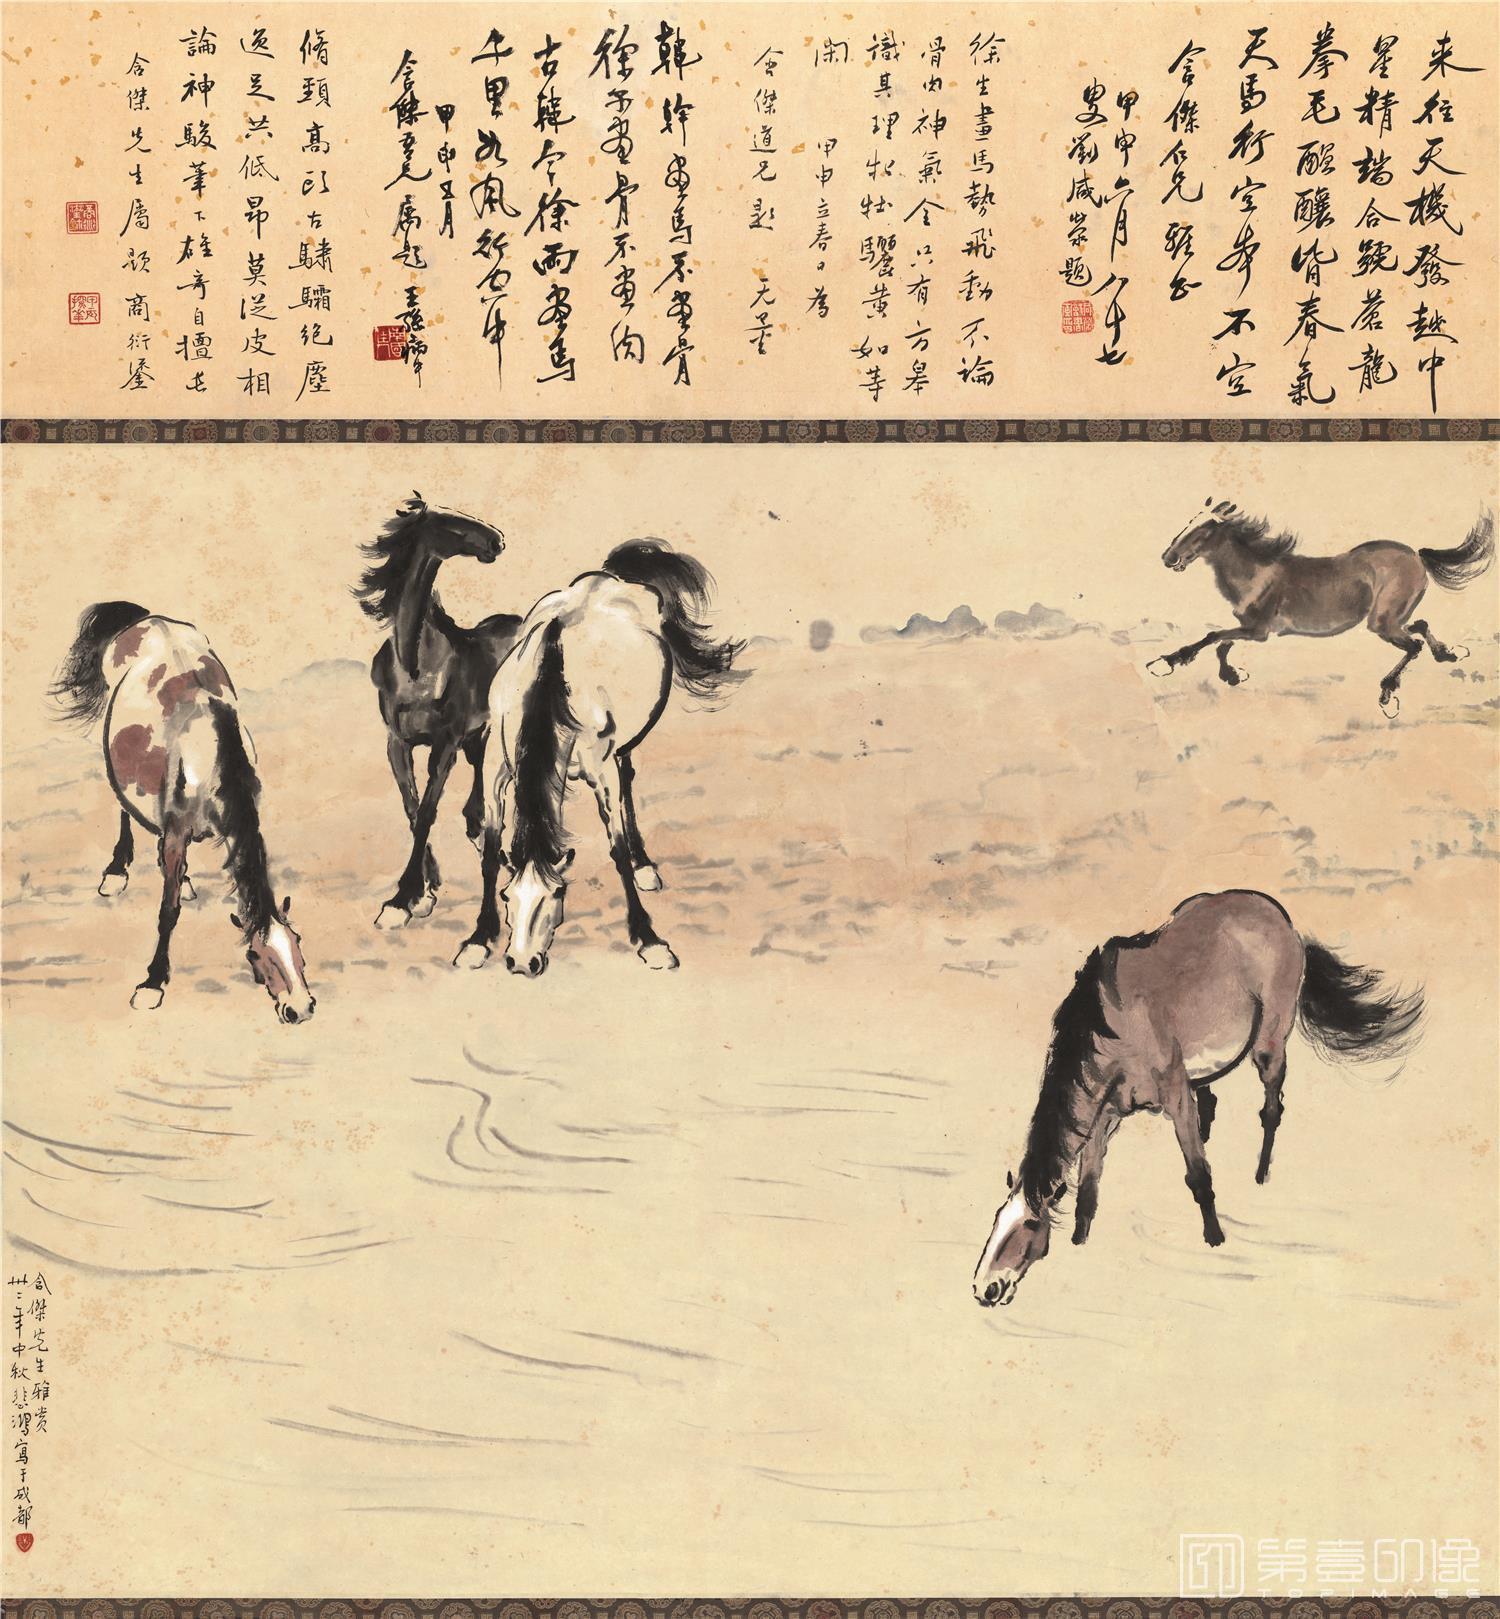 来往天機發越中
星精端合號蒼龍
拳毛醖釀皆春氣
天馬行空本不空
含傑仁兄雅正
甲申六月八十七
叟劉咸滎題
徐生畫馬勢飛動不論
骨肉神氣全只有方皋
識其理牝牡驪黄如等
閑 甲申立春日為
含傑道兄題 无量
韓幹畫馬不畫骨
徐尔畫骨不畫肉
古韓今徐兩畫馬
千里如風行空中
甲申五月
含傑吾兄属題
脩頸高
古驌驦絶塵
逸足共低昂莫從皮相
論神駿筆下雄奇自擅長
含傑先生属題 商衍鎏
含傑先生雅赏
卅二年中秋悲鴻寫于成都
第壹印像
TOPIMAGE